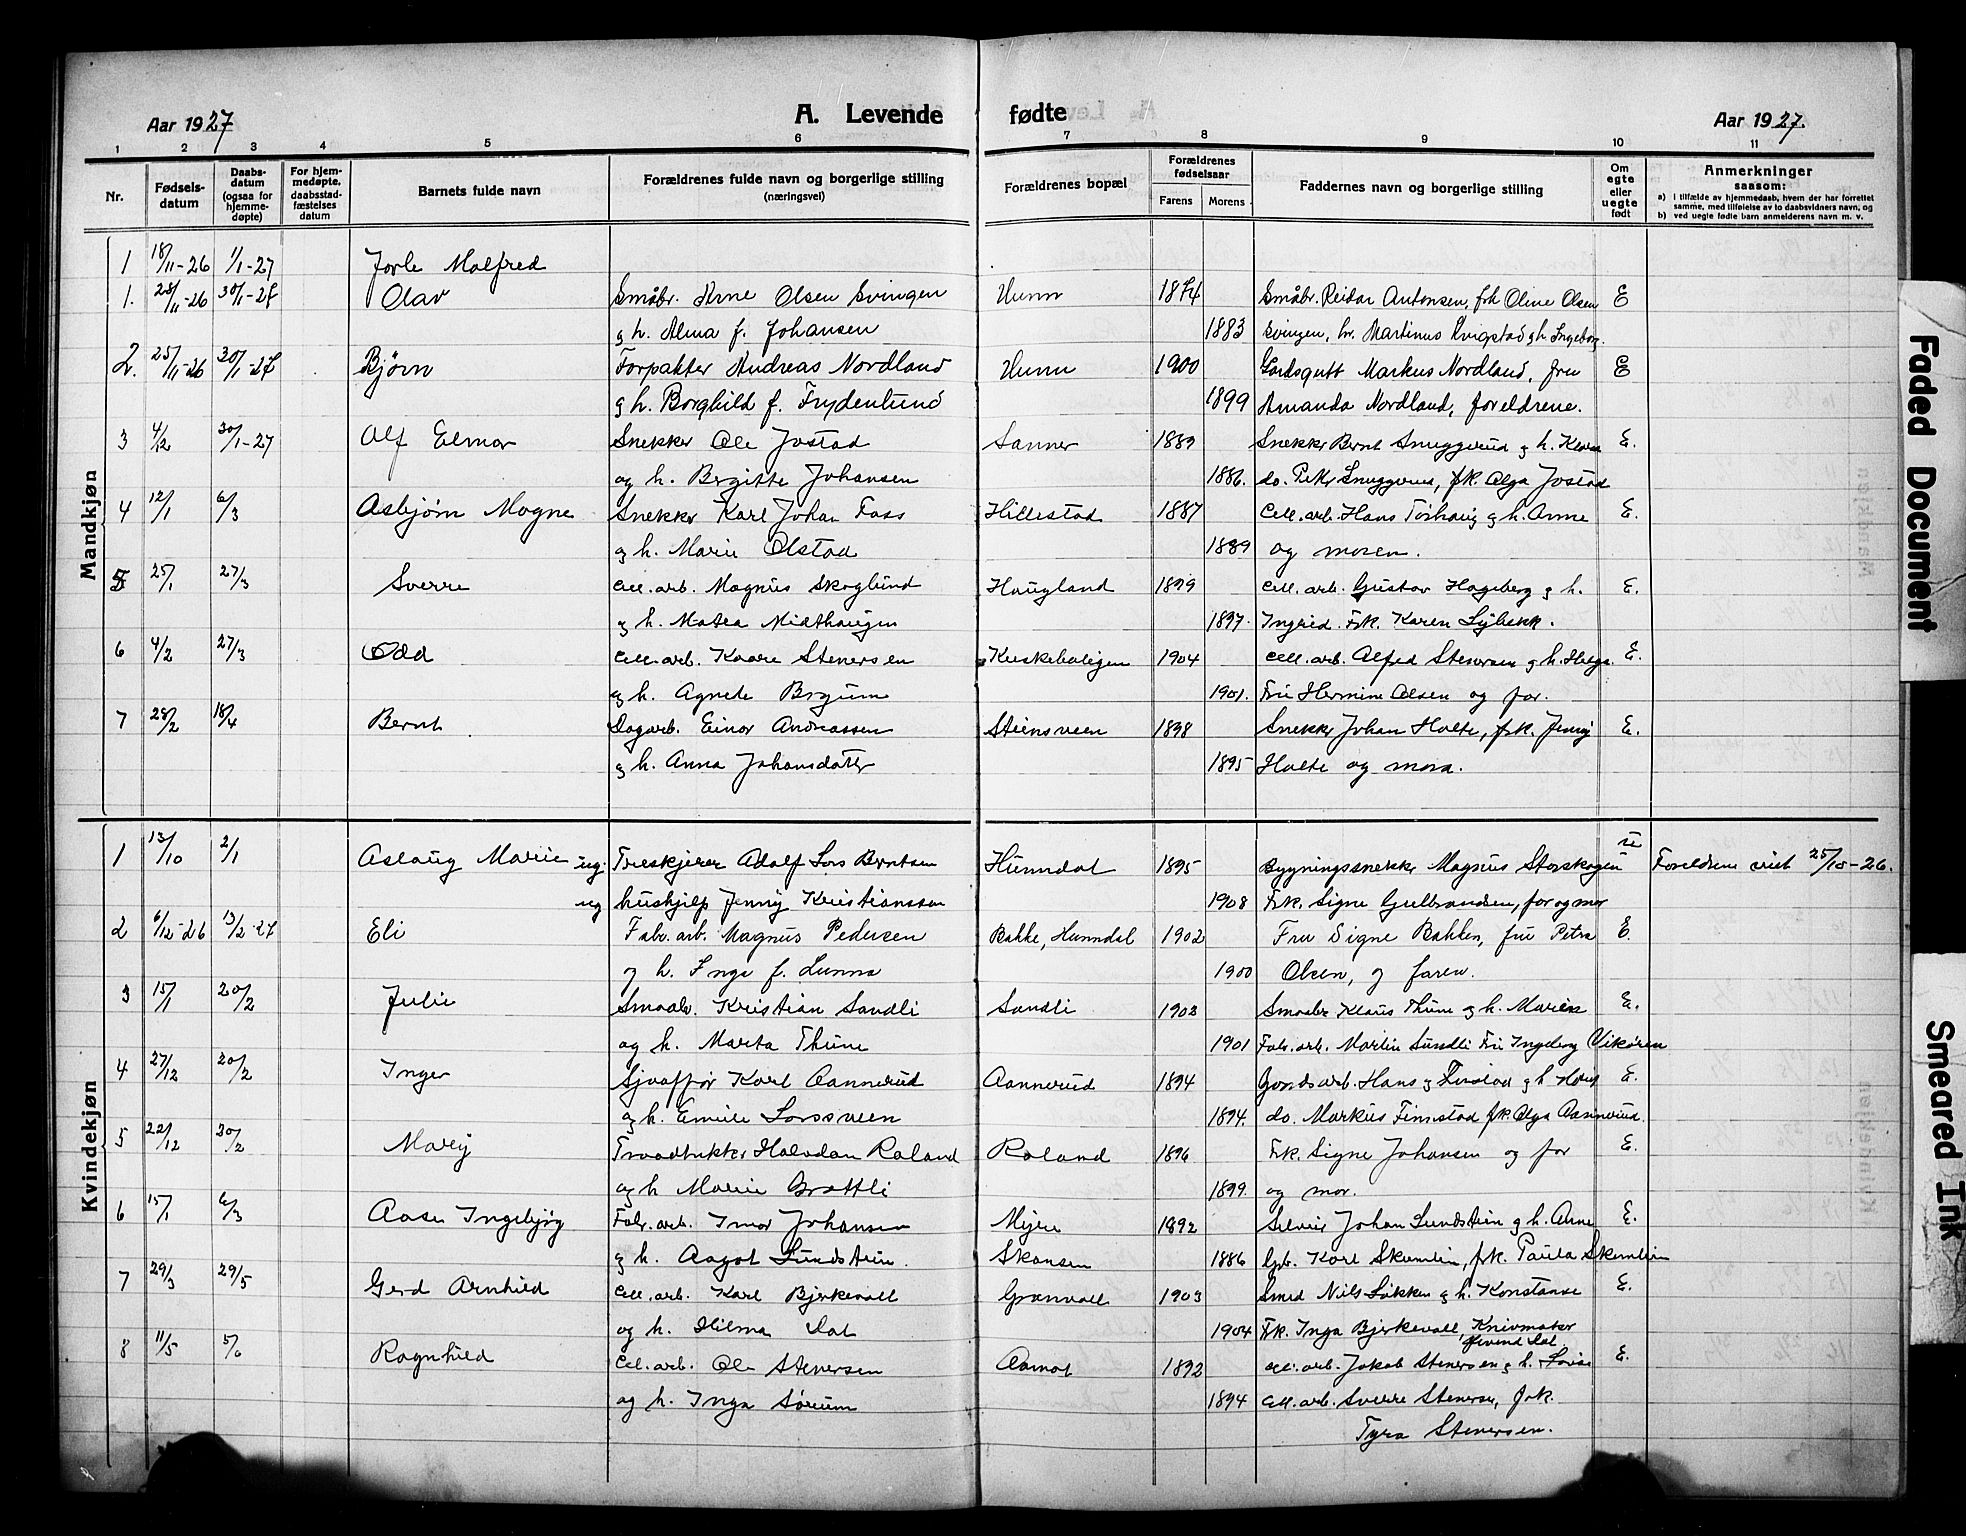 A. Levende fødte
Aar 1927
Aar 1927.
1 2 3 4 5 6 7 8 9 10 11
Nr. Fødsels-datum Daabs-datum (ogsaa for hjemme-døpte) For hjem-medøpte, daabsstad-fæstelses datum Barnets fulde navn Forældrenes fulde navn og borgerlige stilling (næringsvei) Forældrenes bopæl Forældrenes fødselsaar Farens Morens Faddernes navn og borgerlige stilling Om egte eller uegte født Anmerkninger saasom:
a) i tilfælde av hjemmedaab, hvem der har forrettet samme, med tilføielse av to daabsvidners navn, og
b) ved uegte fødte barn anmelderens navn m. v.
Mandkjøn
1 18/11-26 1/1-27 Jarle Malfred
1. 28/11-26 30/1-27 Olav Småbr. Arne Olsen Svingen Hunn 1874 Småbr. Reidar Antonsen, frk Oline Olsen E
g h. Alma f. Johansen 1883 Svingen, br. Martinus g h Ingeborg.
2. 25/11-26 30/1-27 Bjørn Forpakter Andreas Nordland Hunn 1900 Gardsgutt Markus Nordland, fru E
g h. Borghild f. Frydenlund 1899 Amanda Nordland, foreldrene.
3 4/12 30/1-27 Alf Elmar Snekker Ole Jostad Sanner 1889 Snekker Bernt Snuggerud g h. E.
og h. Bergitte Johansen 1886. do. Snuggerud, frk. Olga Jostad
4 12/1 6/3 Asbjørn Magne Snekker Karl Johan Foss Hillestad 1887 Cell. arb. Hans Torhaug g h. Anne E.
g h. Marie Olstad 1889 og moren.
5 25/1 27/3 Sverre Cell. arb. Magnus Skoglund Haugland 1899 Cell. arb. Gustav Hageberg g h. E.
g h. Matea Midthaugen 1897. Ingrid. Frk. Karen Lybekk.
6 4/2 27/3 Odd Cell. arb. Kaare Stenersen Kuskeboligen 1904 Cell. arb. Alfred Stenersen g h. Helga. E.
g h. Agnete Bergum 1901. Fru Hermine Olsen og far.
7 28/2 18/4 Bernt Dagarb. Einar Andreassen Steinsveen 1898 Snekker Johan Holte, frk. Jenny E.
g h. Anna Johansdater 1895 Holte og mora.
Kvindekjøn
1 13/10 2/1 Aslaug Marie ug. Treskjærer Adolf Lars Berntsen Hunndal 1895 Bygningssnekk. Magnus Storskogen u Foreldrene viet 25/10-26.
ug hushjelp Jenny Kristianssen 1908 Frk. Signe Gulbrandsen, far og mor
2 6/12-26 13/2-27 Eli Fabr. arb. Magnus Pedersen Bakke, Hunndal 1902 Fru Signe Bakken, fru Petra E.
og h. Inga f. Lunna 1900 Olsen, og faren.
3 15/1 20/2 Julie Smaabr. Kristian Sandli Sandli 1903 Smaabr Klaus Thune g h. Marie E.
og h. Marta Thune 1901 Fabr. arb. Martin Sundli Fru Ingeborg Vikøren
4 27/12 20/2 Inger Sjaaffør Karl Aannerud Aannerud 1894 Gardsarb. Hans g h E.
g h. Emilie Larssveen 1894. do. Markus Finnstad frk. Olga Aannerud.
5 22/12 20/2 Mary Traadtrekker Halvdan Roland Roland 1896 Frk. Signe Johansen og far E.
og h Marie Brattli 1899. og mor.
6 15/1 6/3 Aase Ingebjøg Fabr. arb. Johansen 1892 Johan Lundstein g h. Anne E.
g h. Aagot Lundstein. Skansen 1886 Gbr. Karl Skumlien, frk. Paula Skumlien
7 29/3 29/5 Gerd Arnhild Cell. arb. Karl Bjerkevoll Granvoll 1903 Smed Nils Løkken g h. Konstanse E.
og h. Hilma Dal 1904 Frk. Inga Bjerkevoll, Knivmaker
Øivind Dal.
8 11/5 5/6 Ragnhild Cel. arb. Ole Stenersen Aamot 1892 Cell. arb. Jakob Stenersen g h. Lovise E.
og h. Inga Sørum 1894 Cell. arb. Sverre Stenersen, frk.
Tyra Stenersen.
Faded Document
Smeared Ink